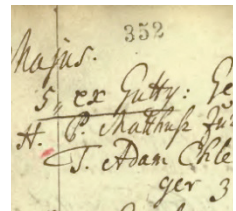 352
Majus.
5,, ex Gutty: Ge
H. P. Matthuß Fü
T. Adam Chle
ger 3